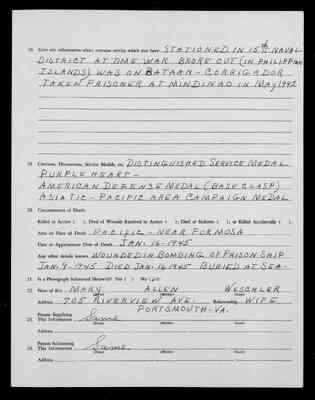 18. Give any information about overseas service which you have: STATIONED IN 15th NAVAL
DISTRICT AT TIME WAR BROKE OUT (IN PHILIPPINE
ISLANDS) WAS ON BATAAN - CORRIGADOR
TAKEN PRISONER AT MINDINAO IN MAY 1942
19. Citations, Decorations, Service Medals, etc. DISTINGUISHED SERVICE MEDAL
PURPLE HEART -
AMERICAN DEFENSE MEDAL (BASE CLASP)
ASIATIC - PACIFIC AREA CAMPAIGN MEDAL
20. Circumstances of Death.
Killed in Action ( ); Died of Wounds Received in Action ( ); Died of Sickness ( ); or Killed Accidentally ( ).
Area or Place of Death PACIFIC - NEAR FORMOSA
Date or Approximate Date of Death JAN. 16-1945
Any other details known WOUNDED IN BOMBING OF PRISON SHIP
JAN. 9-1945 DIED JAN. 16 1945 BURIED AT SEA -
21. Is a Photograph Submitted Herewith? Yes ( ) No
22. Next of Kin MARY ALLEN WESCHLER
(First) (Middle) (Last)
Address 705 RIVERVIEW AVE. Relationship WIFE
PORTSMOUTH - VA.
23. Person Supplying
This Information Same
(First) (Middle) (Last)
Address
24. Person Submitting
This Information Same
(First) (Middle) (Last)
Address